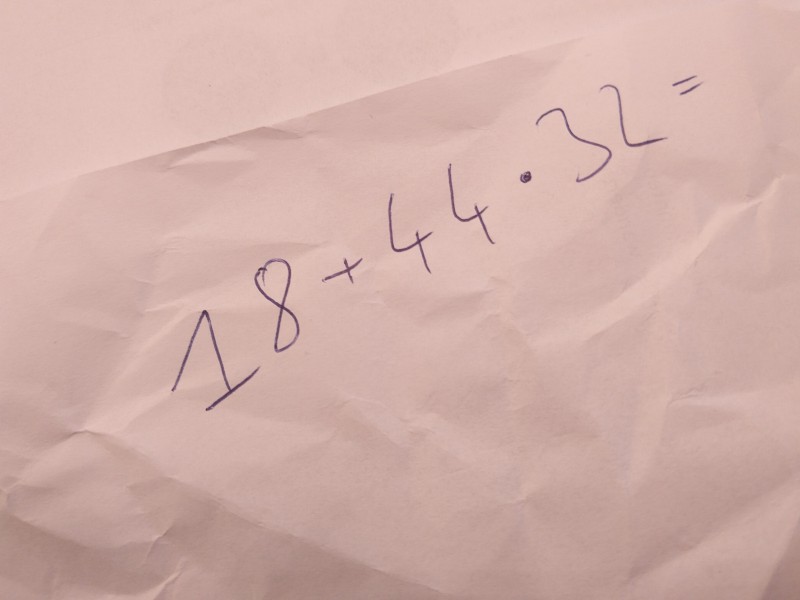 18 + 44 · 32 =